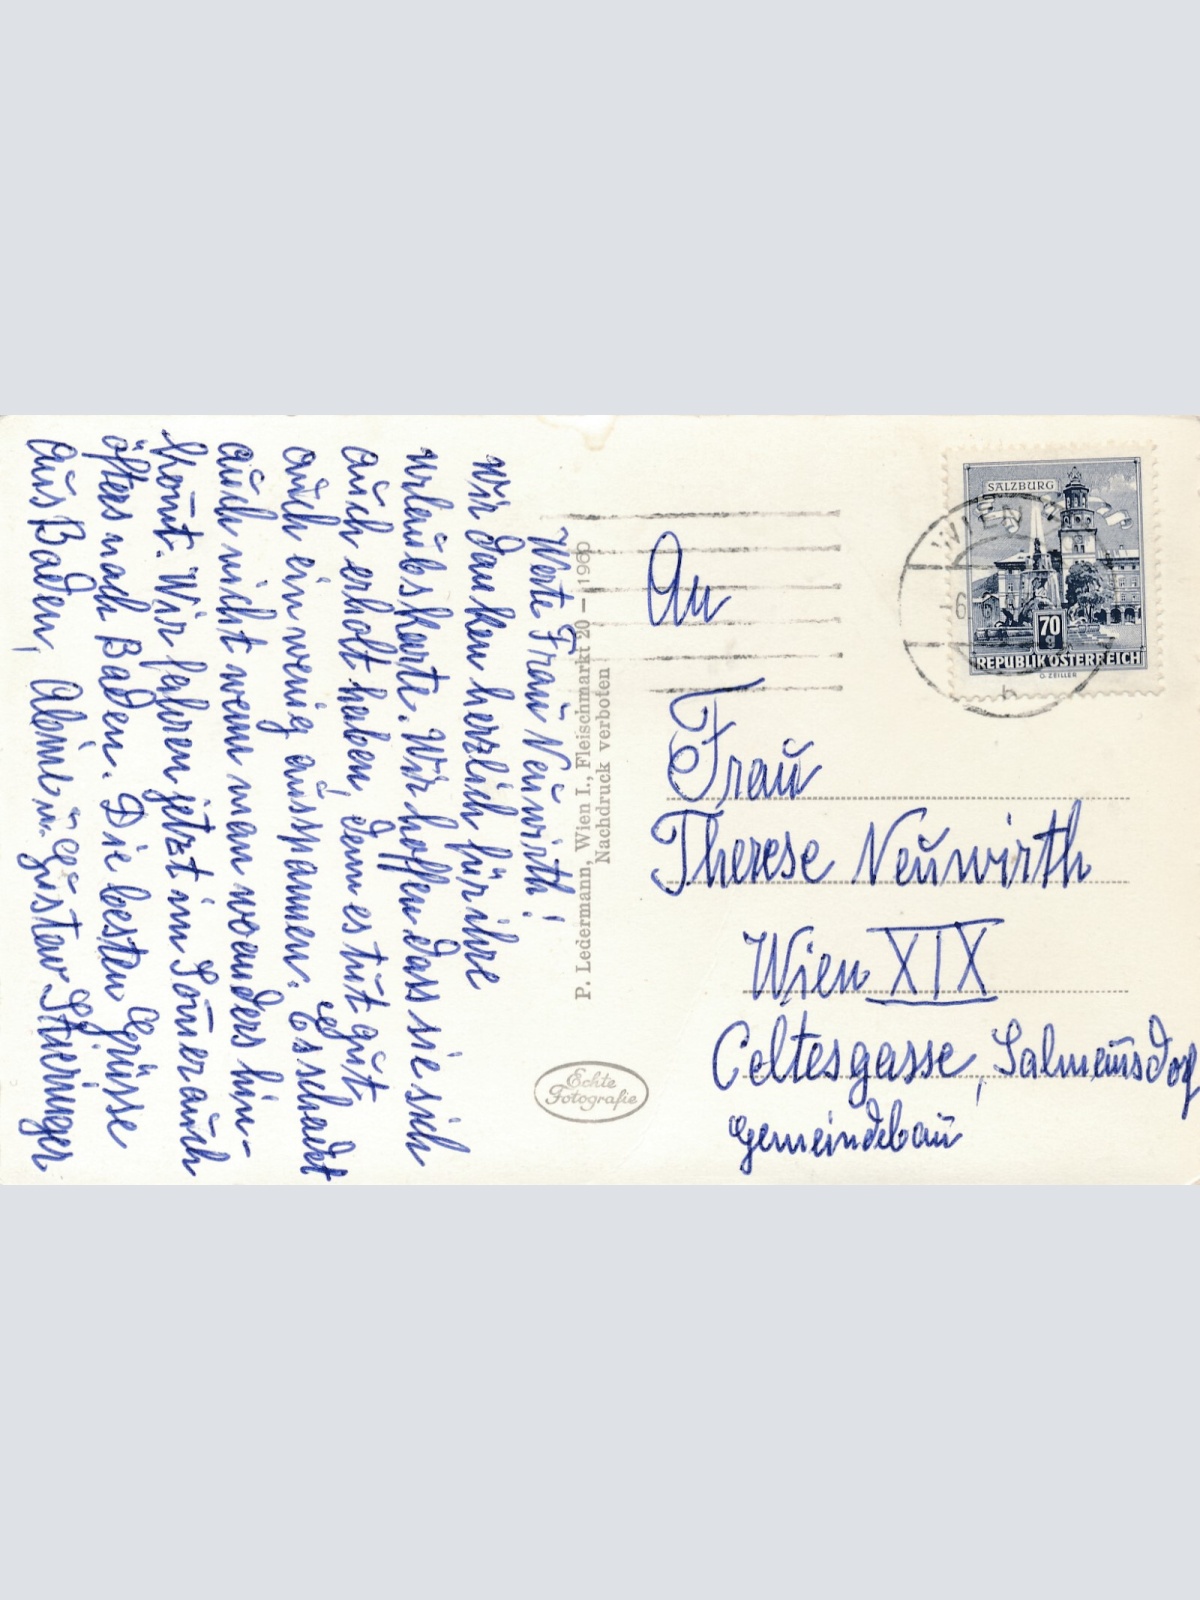 Werte Frau Neuwirth!
wir danken herzlich für ihre
urlaubskarte. Wir hoffen dass sie sich
auch erholt haben, denn es tut gut
auch ein wenig ausspannen. Es schadet
auch nicht wenn man wo anders hin-
kom̄t. Wir fahren jetzt im Som̄er auch
öfters nach Baden. Die besten Grüsse
aus Baden, u. Gustav
P. Ledermann, Wien I., Fleischmarkt 20 – 1960
Nachdruck verboten
Echte
Fotografie
SALZBURG
70 g
REPUBLIK ÖSTERREICH
O. ZEILLER
WIEN
-6.
b
An
Frau
Therese Neuwirth
Wien XIX
Celtesgasse, Salmannsdorf
Gemeindebau